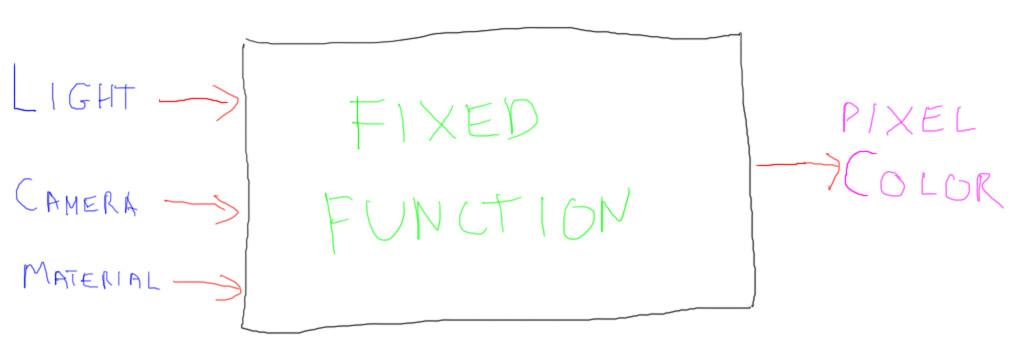 LIGHT
CAMERA
MATERIAL
FIXED
FUNCTION
PIXEL
COLOR